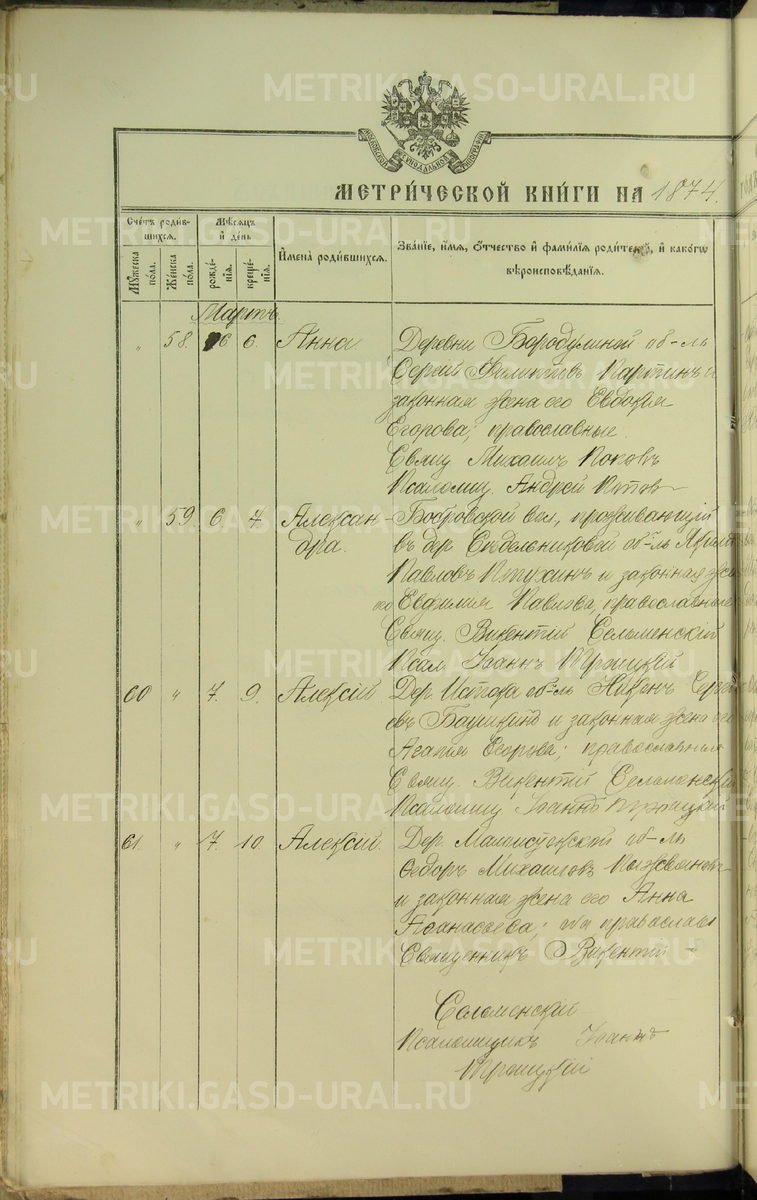 METRIKI.GASO-URAL.RU
МЕТРИ́ЧЕСКОЙ КНИ́ГИ НА 1874.
Сче́тъ роди́вшихся.
Му́жеска по́ла.
Же́нска по́ла.
Мѣ́сяцъ и҆ де́нь
рожде́нїѧ.
креще́нїѧ.
И҆мена̀ роди́вшихся.
Зва́нїе, и҆́мѧ, ѻ҆́тчество и҆ фами́лїѧ роди́телей, и҆ како́гѡ вѣроисповѣ́данїѧ.
Мартъ.
„ 58. 6 6. Анна
Деревни Бородулиной об-ль
Сергей Карпинъ и
законная жена его Евдокия
Егорова, православные.
Свящ Михаилъ Поповъ
Псаломщ. Андрей
„ 59. 6. 7. Алексан-
дра.
вол, проживающій
въ дер Сидельниковой об-ль
Павловъ Птухинъ и законная жена
его Евфимия Павлова, православные
Свящ. Викентій Селменскій
Псал. Іоаннъ Троицкій
60 „ 7. 9. Алексій.
Дер. Истока об-ль Никонъ Сергѣ
евъ и законная жена его
Агапия Егорова; православныя
Свящ. Викентій Селменскій
Псаломщ Іоаннъ Троицкій
61. „ 7. 10. Алексій.
Дер. Малоистокской об-ль
Ѳедоръ Михаиловъ
и законная жена его Анна
Аѳанасьева; оба православ
Священникъ Викентій
Селменскій
Псаломщикъ Іоаннъ
Троицкій